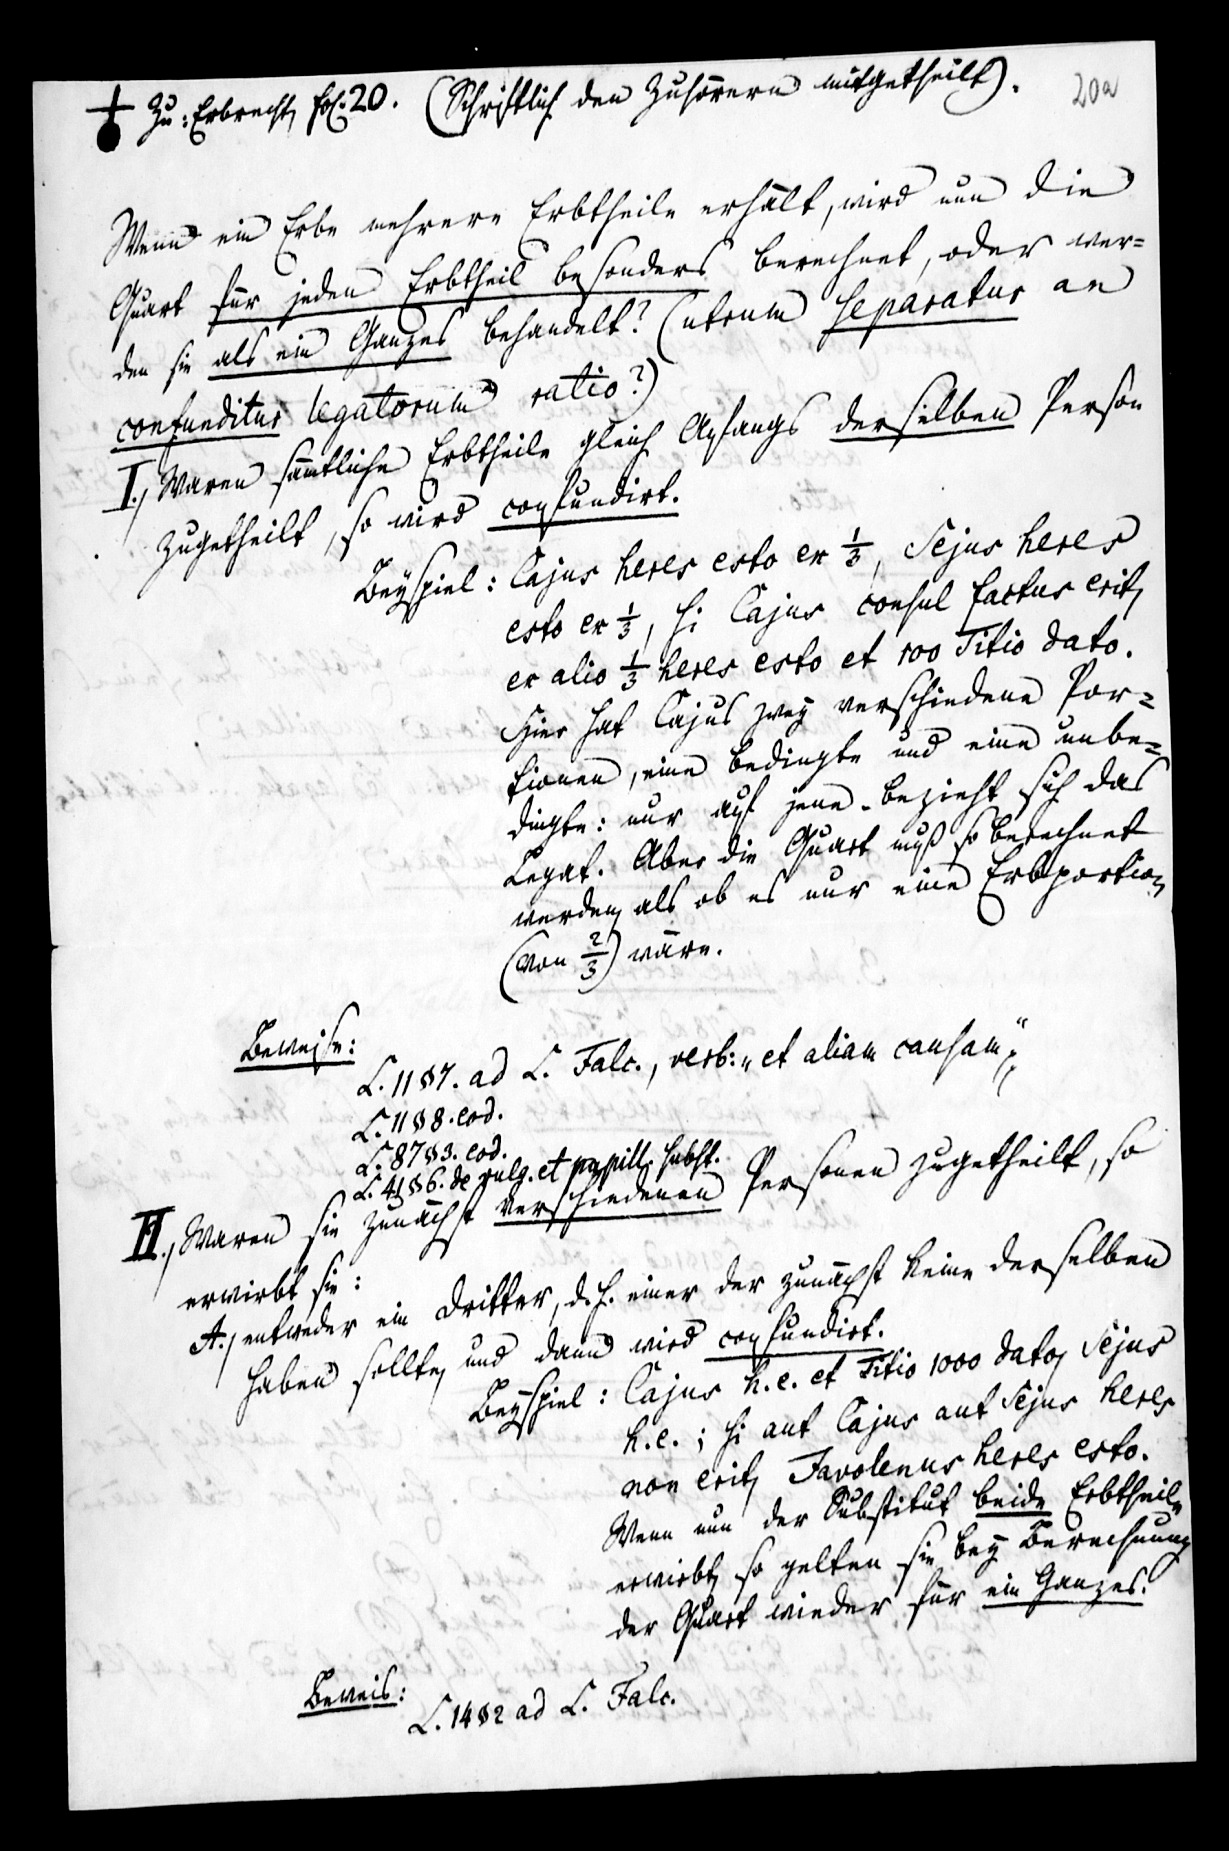 Zu: Erbrecht, fol. 20. (Schriftlich den Zuhörern mitgetheilt). 20a
Wenn ein Erbe mehrere Erbtheile erhält, wird nun die
Quart für jeden Erbtheil besonders berechnet, oder wer=
den sie als ein Ganzes behandelt? (utrum separatur an
confunditur legatorum ratio?)
I., Waren sämtliche Erbtheile gleich Anfangs derselben Person
zugetheilt, so wird confundirt.
Beyspiel: Cajus heres esto ex 1/3, Sejus heres
esto ex 1/3, si Cajus consul factus erit,
ex alio 1/3 heres esto et 100 Titio dato.
Hier hat Cajus zwey verschiedene Por=
tionen, eine bedingte und eine unbe=
dingte: nur auf jene bezieht sich das
Legat. Aber die Quart muß so berechnet
werden, als ob es nur eine Erbportion,
(von 2/3) wäre.
Beweise:
L. 11 § 7. ad L. Falc., verb: „et aliam causam";
L. 11 § 8. eod.
L. 87 § 3. eod.
L. 41 § 6. de vulg. et pupill. subst.
II., Waren sie zunächst verschiedenen Personen zugetheilt, so
erwirbt sie:
A., entweder ein Dritter, d.h. einer der zunächst keine derselben
haben sollte, und dann wird confundirt.
Beyspiel: Cajus h. e. et Titio 1000 dato, Sejus
h. e.; si aut Cajus aut Sejus heres
non erit, Javolenus heres esto.
Wenn nun der Substitut beide Erbtheile
erwirbt, so gelten sie bey Berechnung
der Quart wieder für ein Ganzes.
Beweis:
L. 14 § 2 ad L. Falc.